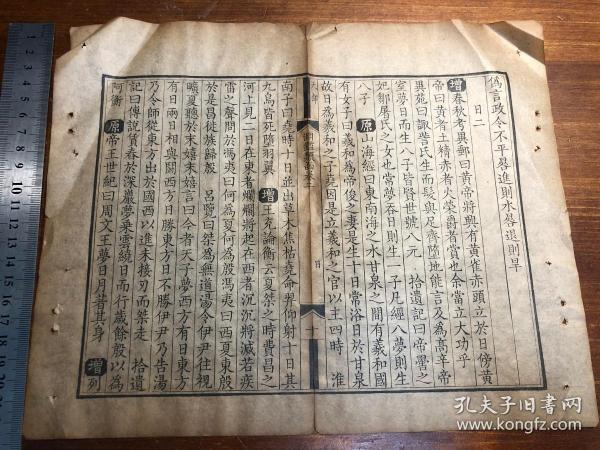 偽言政令不平晷進則水晷退則旱
日二
增春秋考異郵曰黃帝將興有黃雀赤頭立於日傍黃
帝曰黃者土精赤者火榮爵者賞也余當立大功乎
異苑曰諏訾氏生而髮與足齊墮地能言及為高辛帝
室夢日而生八子皆賢世號八元 拾遺記曰帝嚳之
妃鄒屠氏之女也常夢吞日則生一子凡經八夢則生
八子 原山海經曰東南海之水甘泉之間有羲和國
有女子曰羲和為帝俊之妻是生十日常浴日於甘泉
故日為羲和之子堯因是立羲和之官以主四時 淮
南子曰堯時十日並出草木焦枯堯命羿仰射十日其
九烏皆死墮羽翼 增王充論衡云夏桀之時費昌之
河上見二日在東者爛爛將起在西者沉沉將滅若疾
雷之聲問於馮夷曰何為夏何為殷馮夷曰西夏東殷
於是昌徙族歸殷 呂覽曰桀為無道湯令伊尹往視
曠夏聽於末嬉末嬉言曰今者天子夢西方有日東方
有日兩日相與鬬西方日勝東方日不勝伊尹乃告湯
乃令師從東方出於國西以進未接刃而桀走 拾遺
記曰傅說賃春於深巖夢乘雲繞日而行歲餘殷以為
阿衡 原帝王世紀曰周文王夢日月著其身 增列
孔夫子旧書网
www.kongfz.com